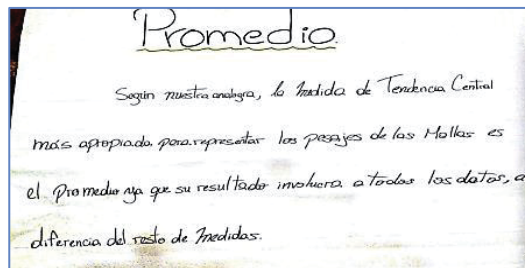 Promedio
Según nuestra analogía, la Medida de Tendencia Central
más apropiada para representar los pesajes de las Mallas es
el Promedio ya que su resultado involucra a todos los datos, a
diferencia del resto de Medidas.